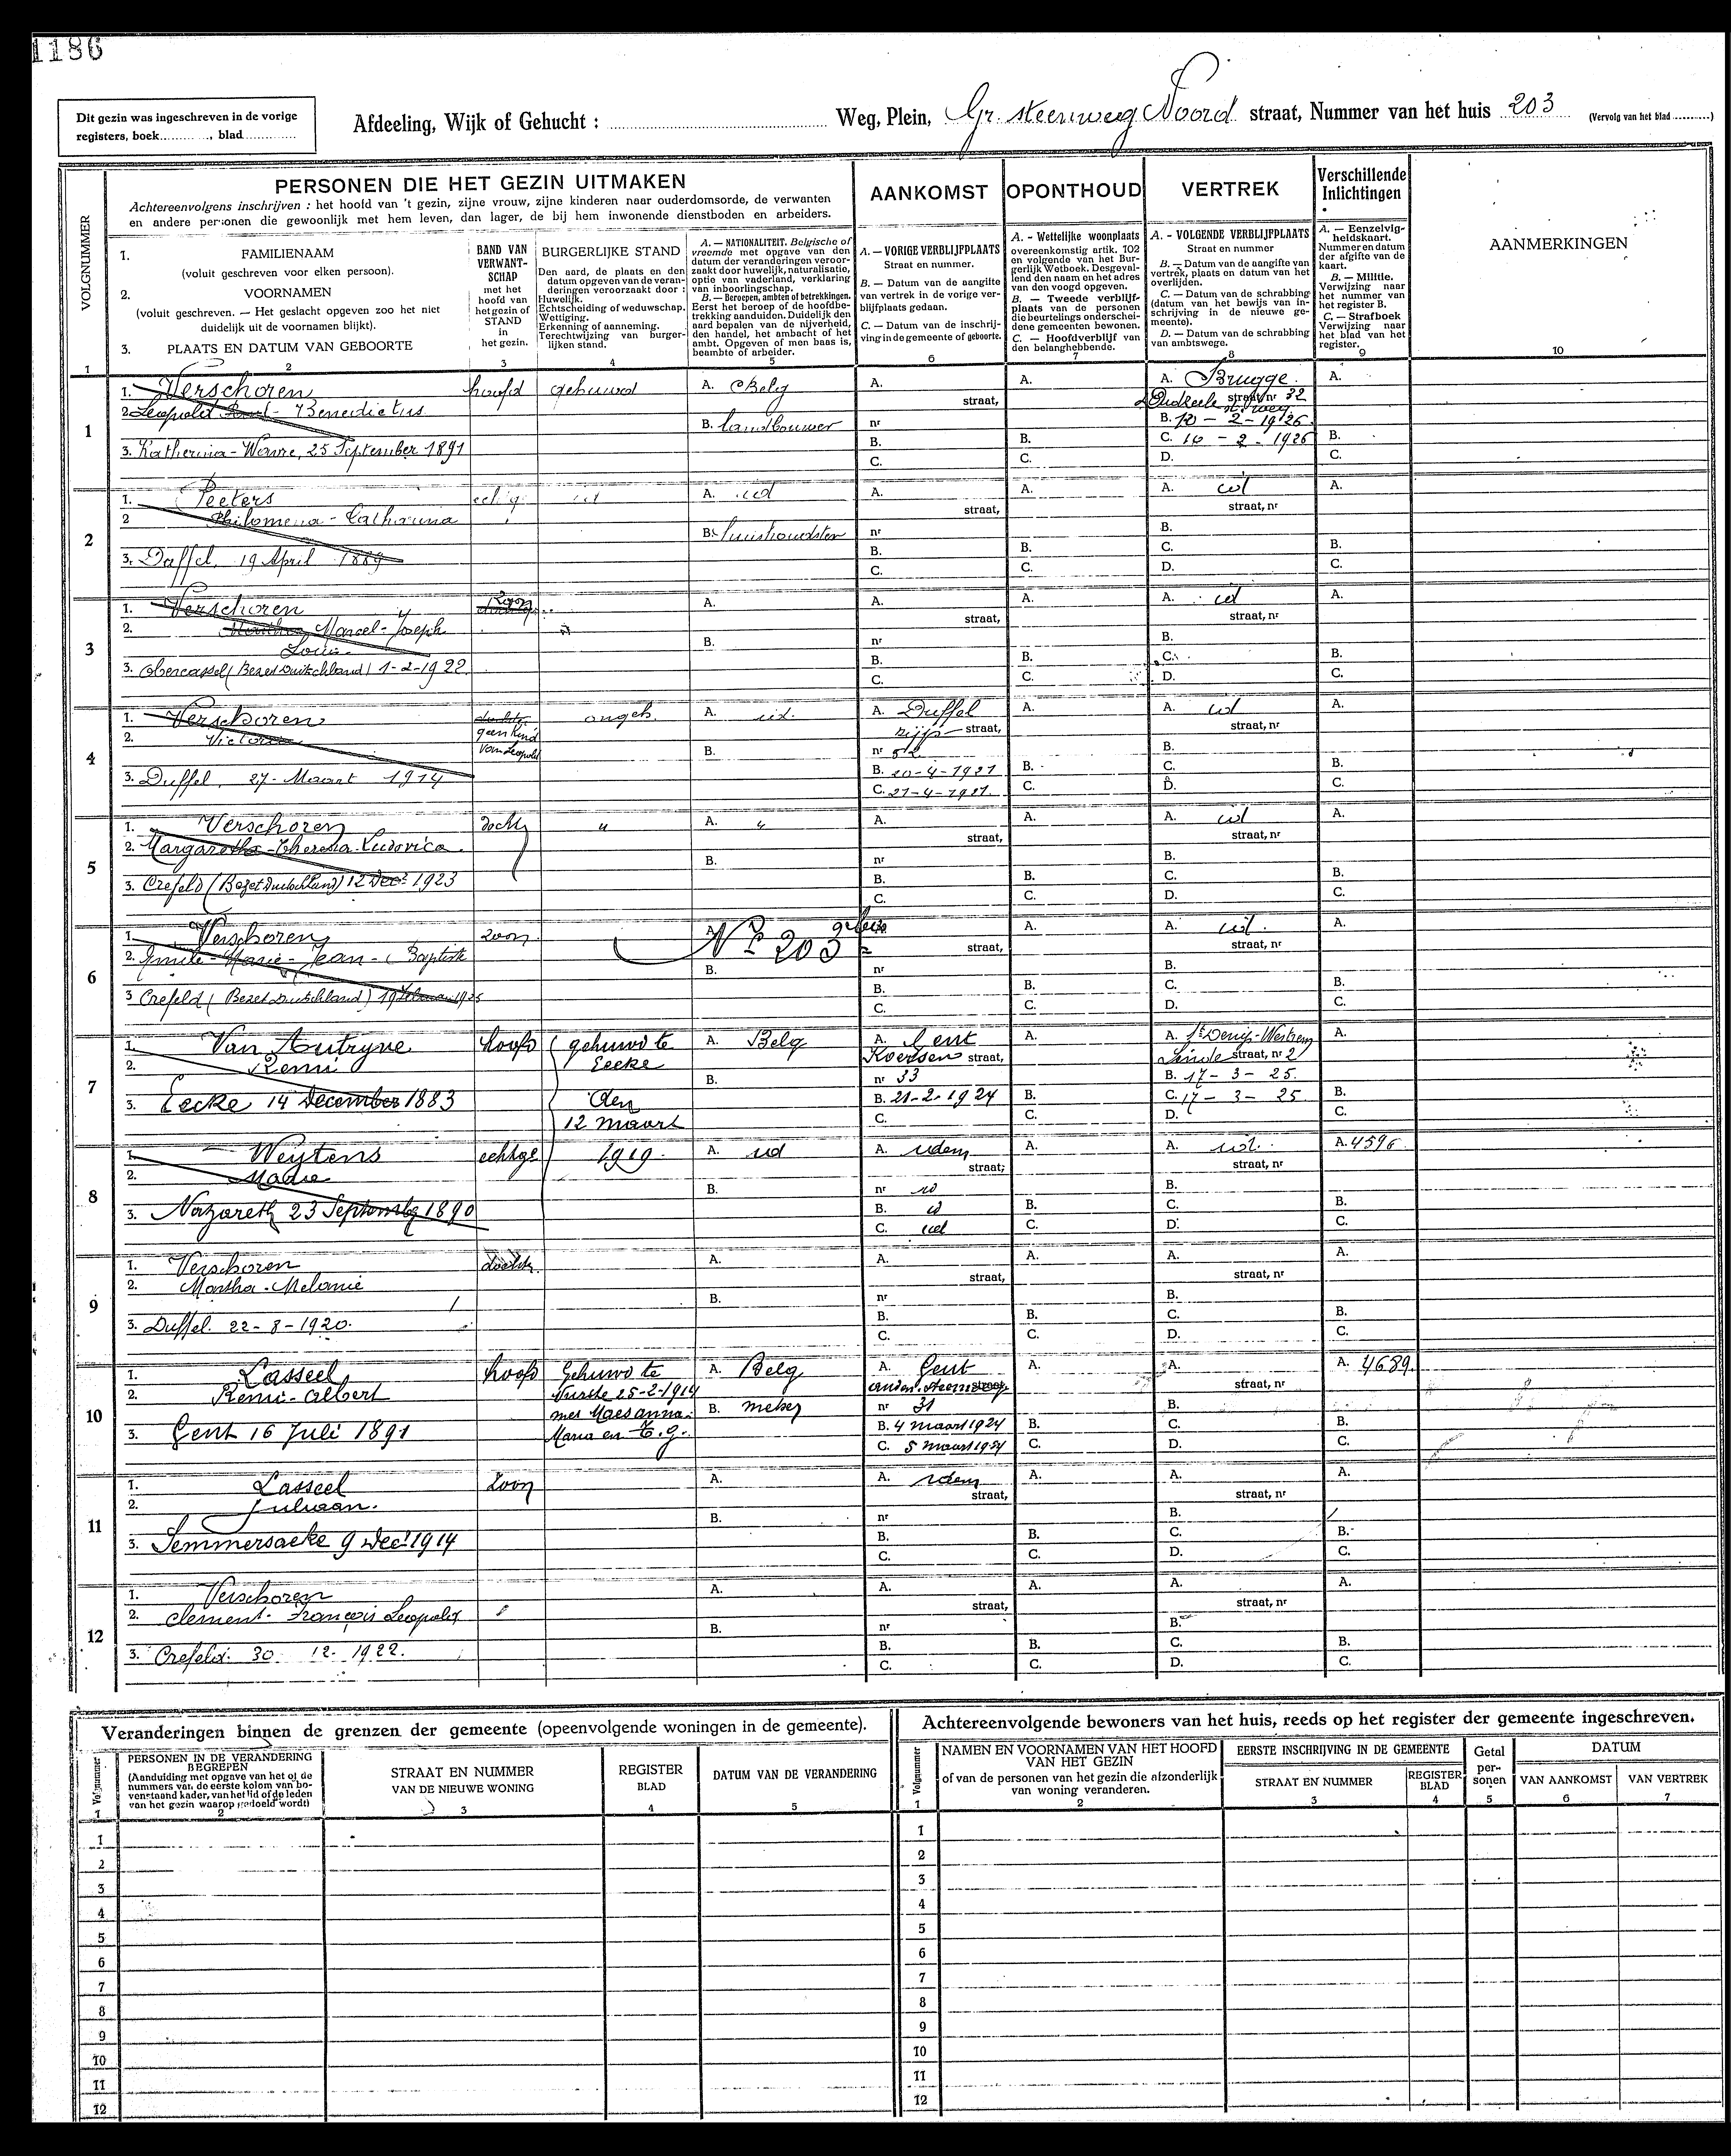 1186
Dit gezin was ingeschreven in de vorige
registers, boek.........., blad.............
Afdeeling, Wijk of Gehucht : ............ Weg, Plein, Gr. steenweg Noord straat, Nummer van het huis 203 (Vervolg van het blad ..........)
VOLGNUMMER
PERSONEN DIE HET GEZIN UITMAKEN
Achtereenvolgens inschrijven : het hoofd van 't gezin, zijne vrouw, zijne kinderen naar ouderdomsorde, de verwanten
en andere personen die gewoonlijk met hem leven, dan lager, de bij hem inwonende dienstboden en arbeiders.
1. FAMILIENAAM
(voluit geschreven voor elken persoon).
2. VOORNAMEN
(voluit geschreven. — Het geslacht opgeven zoo het niet
duidelijk uit de voornamen blijkt).
3. PLAATS EN DATUM VAN GEBOORTE
BAND VAN
VERWANT-
SCHAP
met het
hoofd van
het gezin of
STAND
in
het gezin.
BURGERLIJKE STAND
Den aard, de plaats en den
datum opgeven van de veran-
deringen veroorzaakt door :
Huwelijk.
Echtscheiding of weduwschap.
Wettiging.
Erkenning of aanneming.
Terechtwijzing van burger-
lijken stand.
A. — NATIONALITEIT. Belgische of
vreemde met opgave van den
datum der veranderingen veroor-
zaakt door huwelijk, naturalisatie,
optie van vaderland, verklaring
van inboorlingschap.
B. — Beroepen, ambten of betrekkingen.
Eerst het beroep of de hoofdbe-
trekking aanduiden. Duidelijk den
aard bepalen van de nijverheid,
den handel, het ambacht of het
ambt. Opgeven of men baas is,
beambte of arbeider.
AANKOMST
A. — VORIGE VERBLIJFPLAATS
Straat en nummer.
B. — Datum van de aangifte
van vertrek in de vorige ver-
blijfplaats gedaan.
C. — Datum van de inschrij-
ving in de gemeente of geboorte.
OPONTHOUD
A. - Wettelijke woonplaats
overeenkomstig artik. 102
en volgende van het Bur-
gerlijk Wetboek. Desgeval-
lend den naam en het adres
van den voogd opgeven.
B. — Tweede verblijf-
plaats van de personen
die beurtelings onderschei-
dene gemeenten bewonen.
C. — Hoofdverblijf van
den belanghebbende.
VERTREK
A. - VOLGENDE VERBLIJFPLAATS
Straat en nummer
B. — Datum van de aangifte van
vertrek, plaats en datum van het
overlijden.
C. — Datum van de schrabbing
(datum van het bewijs van in-
schrijving in de nieuwe ge-
meente).
D. — Datum van de schrabbing
van ambtswege.
Verschillende
Inlichtingen
A. — Eenzelvig-
heidskaart.
Nummer en datum
der afgifte van de
kaart.
B. — Militie.
Verwijzing naar
het nummer van
het register B.
C. — Strafboek
Verwijzing naar
het blad van het
register.
AANMERKINGEN
1 2 3 4 5 6 7 8 9 10
1
1. Verschoren hoofd gehuwd A. Belg A. A. A. Brugge. A.
straat, straat, nr 32
2. Leopold - Benedictus
B. landbouwer nr B. 12 - 2 - 1926.
3. Katherina-Wavre, 25 September 1891 B. B. C. 16 - 2 - 1926 B.
C. C. D. C.
2
1. Peeters echtg. id A. id A. A. A. id A.
2 Philomena - Catharina straat, straat, nr
B. huishoudster nr B.
3. Duffel, 19 April 1889 B. B. C. B.
C. C. D. C.
3
1. Verschoren zoon A. A. A. A. id A.
2. Martha Marcel - Joseph straat, straat, nr
Louis B. nr B.
3. Obercassel (Bezet Duitschland) 1-2-1922. B. B. C. B.
C. C. D. C.
4
1. Verschoren dochter ongeh. A. id. A. Duffel A. A. id A.
2. Victorine geen kind van Leopold straat, straat, nr
B. nr 52 B.
3. Duffel, 27 - Maart 1914 B. 20-4-1921 B. C. B.
C. 21-4-1921. C. D. C.
5
1. Verschoren docht " A. " A. A. A. id A.
2. Margaretha-Theresia-Ludovica. straat, straat, nr
B. nr B.
3. Crefeld (Bezet Duitschland) 12 Dec. 1923 B. B. C. B.
C. C. D. C.
6
1. Verschoren zoon. A. Nr 203 A. A. A. id. A.
2. Emile - Marie - Jean - Baptiste straat, straat, nr
B. nr B.
3 Crefeld (Bezet Duitschland) 19 Februari 1925 B. B. C. B.
C. C. D. C.
7
1. Van Autryve hoofd gehuwd te A. Belg A. Gent A. A. St Denijs-Westrem A.
2. Remi Eecke Koersen straat, Linde straat, nr 2
B. nr 33 B. 17 - 3 - 25.
3. Eecke 14 December 1883 den B. 21-2-1924 B. C. 17 - 3 - 25. B.
12 maart C. C. D. C.
8
1. Weytens echtge 1919. A. id A. idem A. A. id. A. 4596.
2. Marie straat, straat, nr
B. nr id B.
3. Nazareth 23 September 1890 B. id B. C. B.
C. id C. D. C.
9
1. Verschoren dochter A. A. A. A. A.
2. Martha - Melanie straat, straat, nr
B. nr B.
3. Duffel. 22 - 8 - 1920. B. B. C. B.
C. C. D. C.
10
1. Lasseel hoofd Gehuwd te A. Belg A. Gent A. A. A. 4689.
2. Remi - Albert Vurste 25-2-1914 straat, nr
met Maes anna- B. nr 31 B.
3. Gent 16 Juli 1891 Maria en E.g. B. 4 maart 1924 B. C. B.
C. 5 maart 1924 C. D. C.
11
1. Lasseel zoon A. A. idem A. A. A.
2. Juliaan. straat, straat, nr
B. nr B.
3. Semmersaeke 9 Dec. 1914 B. B. C. B.
C. C. D. C.
12
1. Verschoren A. A. A. A. A.
2. Clement - François Leopold straat, straat, nr
B. nr B.
3. Crefeld. 30 12 - 1922. B. B. C. B.
C. C. D. C.
Veranderingen binnen de grenzen der gemeente (opeenvolgende woningen in de gemeente).
Volgnummer
PERSONEN IN DE VERANDERING
BEGREPEN
(Aanduiding met opgave van het of de
nummers van de eerste kolom van bo-
venstaand kader, van het lid of de leden
van het gezin waarop gedoeld wordt)
STRAAT EN NUMMER
VAN DE NIEUWE WONING
REGISTER
BLAD
DATUM VAN DE VERANDERING
1 2 3 4 5
1
2
3
4
5
6
7
8
9
10
11
12
Achtereenvolgende bewoners van het huis, reeds op het register der gemeente ingeschreven.
Volgnummer
NAMEN EN VOORNAMEN VAN HET HOOFD
VAN HET GEZIN
of van de personen van het gezin die afzonderlijk
van woning veranderen.
EERSTE INSCHRIJVING IN DE GEMEENTE
STRAAT EN NUMMER
REGISTER
BLAD
Getal
per-
sonen
DATUM
VAN AANKOMST VAN VERTREK
1 2 3 4 5 6 7
1
2
3
4
5
6
7
8
9
10
11
12